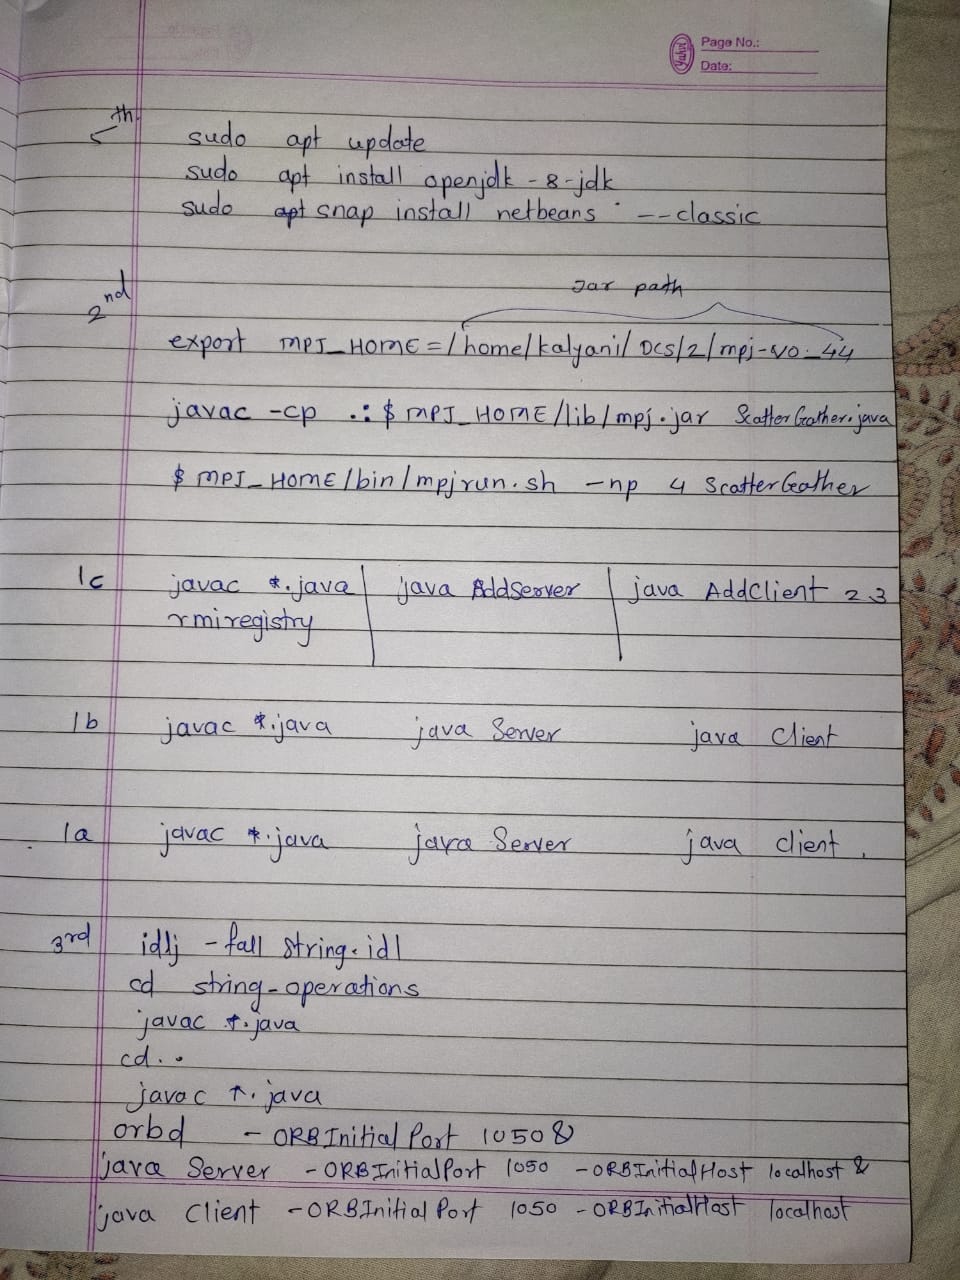 Yuhoi
Page No.:
Date:
5th
sudo apt update
sudo apt install openjdk -8-jdk
sudo snap install netbeans --classic
2nd
Jar path
export MPJ_HOME=/home/kalyani/DCS/2/mpj-v0_44
javac -cp .:$MPJ_HOME/lib/mpj.jar ScatterGather.java
$MPJ_HOME/bin/mpjrun.sh -np 4 ScatterGather
1c javac *.java java AddServer java AddClient 2 3
rmiregistry
1b javac *.java java Server java Client
1a javac *.java java Server java client
3rd idlj -fall string.idl
cd string-operations
javac *.java
cd..
javac *.java
orbd -ORBInitialPort 1050&
java Server -ORBInitialPort 1050 -ORBInitialHost localhost &
java Client -ORBInitialPort 1050 -ORBInitialHost localhost